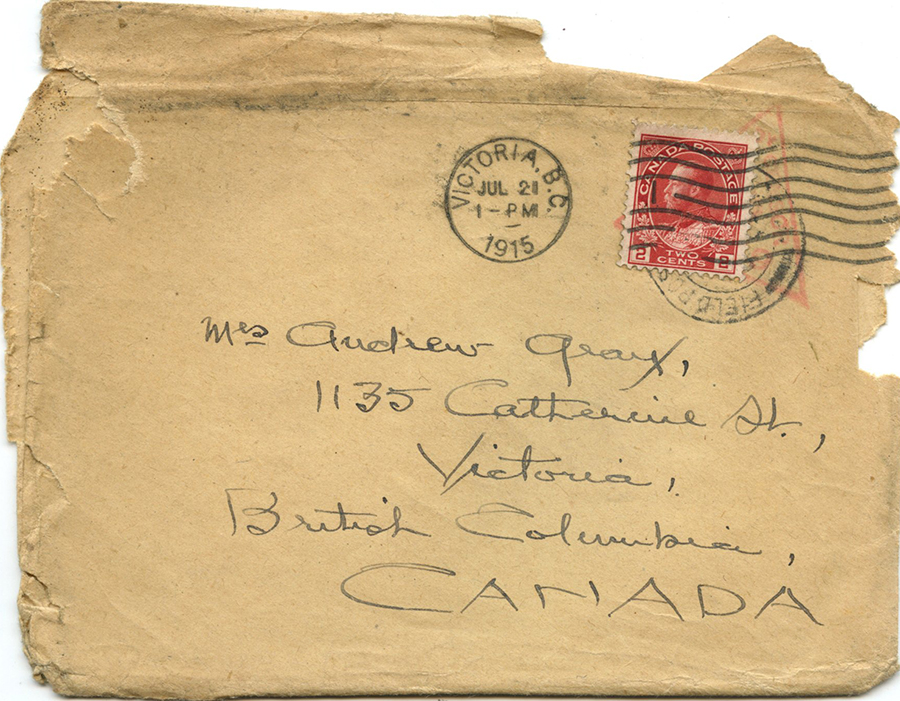 VICTORIA, B.C.
JUL 21
1 - PM
1915
CANADA POSTAGE
2 TWO CENTS 2
FIELD
Mrs Andrew Gray,
1135 Catherine St.,
Victoria,
British Columbia,
CANADA